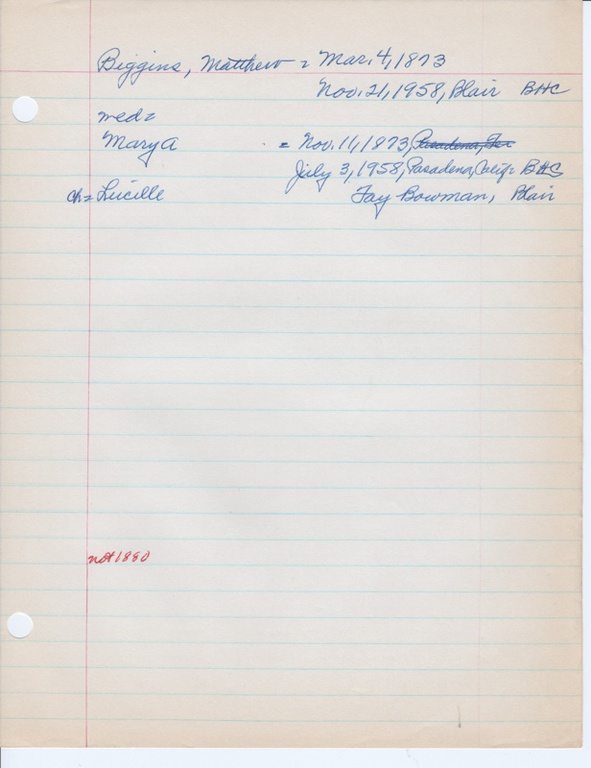 Biggins, Matthew = Mar. 4, 1873
Nov. 21, 1958, Blair BHC
wed=
Mary A = Nov. 11, 1873, Pasadena,
July 3, 1958, Pasadena, Calif= BHC
ch= Lucille Fay Bowman, Blair
not 1880